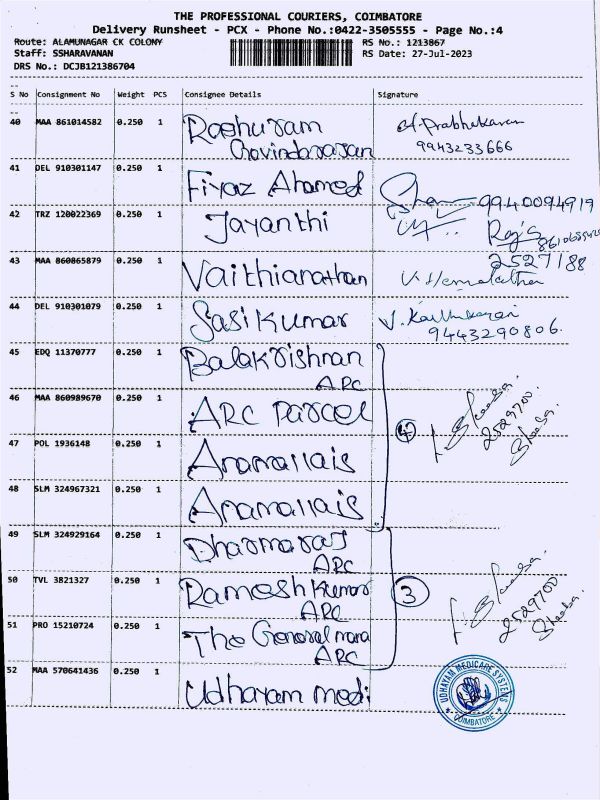 THE PROFESSIONAL COURIERS, COIMBATORE
Delivery Runsheet - PCX - Phone No.:0422-3505555 - Page No.:4
Route: ALAMUNAGAR CK COLONY
RS No.: 1213867
Staff: SSHARAVANAN
RS Date: 27-Jul-2023
DRS No.: DCJB121386704
S No Consignment No Weight PCS Consignee Details Signature
40 MAA 861014582 0.250 1 Raghuram
Govindarajan
A. Prabhakaran
9943233666
41 DEL 910301147 0.250 1 Fiyaz Ahamed
9940094919
42 TRZ 120022369 0.250 1 Jayanthi
43 MAA 860865879 0.250 1 Vaithianathan
2527188
V. Hemalatha
44 DEL 910301079 0.250 1 Sasi Kumar
9443290806.
45 EDQ 11370777 0.250 1 Balakrishnan
ARC
46 MAA 860989670 0.250 1 ARC Parcel
4
2529700
Sheeba.
47 POL 1936148 0.250 1 Anamallais
48 SLM 324967321 0.250 1 Anamallais
49 SLM 324929164 0.250 1 Dharmaraj
ARC
50 TVL 3821327 0.250 1 Ramesh Kumar
ARC
3
2529700
Sheeba.
51 PRO 15210724 0.250 1 The General mana
ARC
52 MAA 570641436 0.250 1 Udhayam medi
UDHAYAM MEDICARE SYSTEMS
COIMBATORE